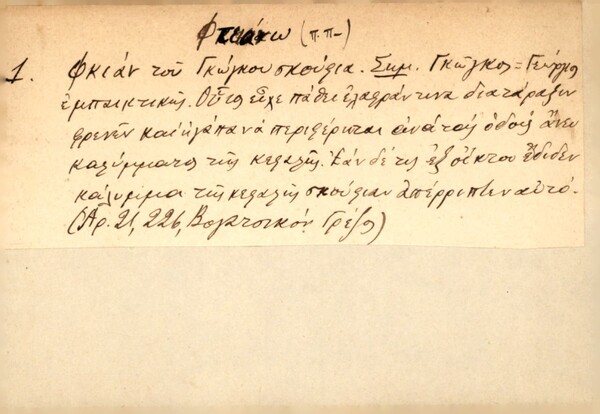 Φκιάνω (π.π-)
1. Φκιάν τοῦ Γκώγκου σκούφια. Σημ. Γκώγκος = Γεώργιος
ἐμπαικτικῶς. Οὗτος εἶχε πάθει ἐλαφράν τινα διατάραξιν
φρενῶν καὶ ἠγάπα νὰ περιφέρεται ἀνὰ τὰς ὁδοὺς ἄνευ
καλύμματος τῆς κεφαλῆς. Ἐὰν δέ τις ἐξ οἴκτου ἔδιδεν
κάλυμμα τῆς κεφαλῆς σκούφιαν ἀπέρριπτεν αὐτό.
(Ἀρ. 21, 226, Βογατσικόν, Γρέζος)